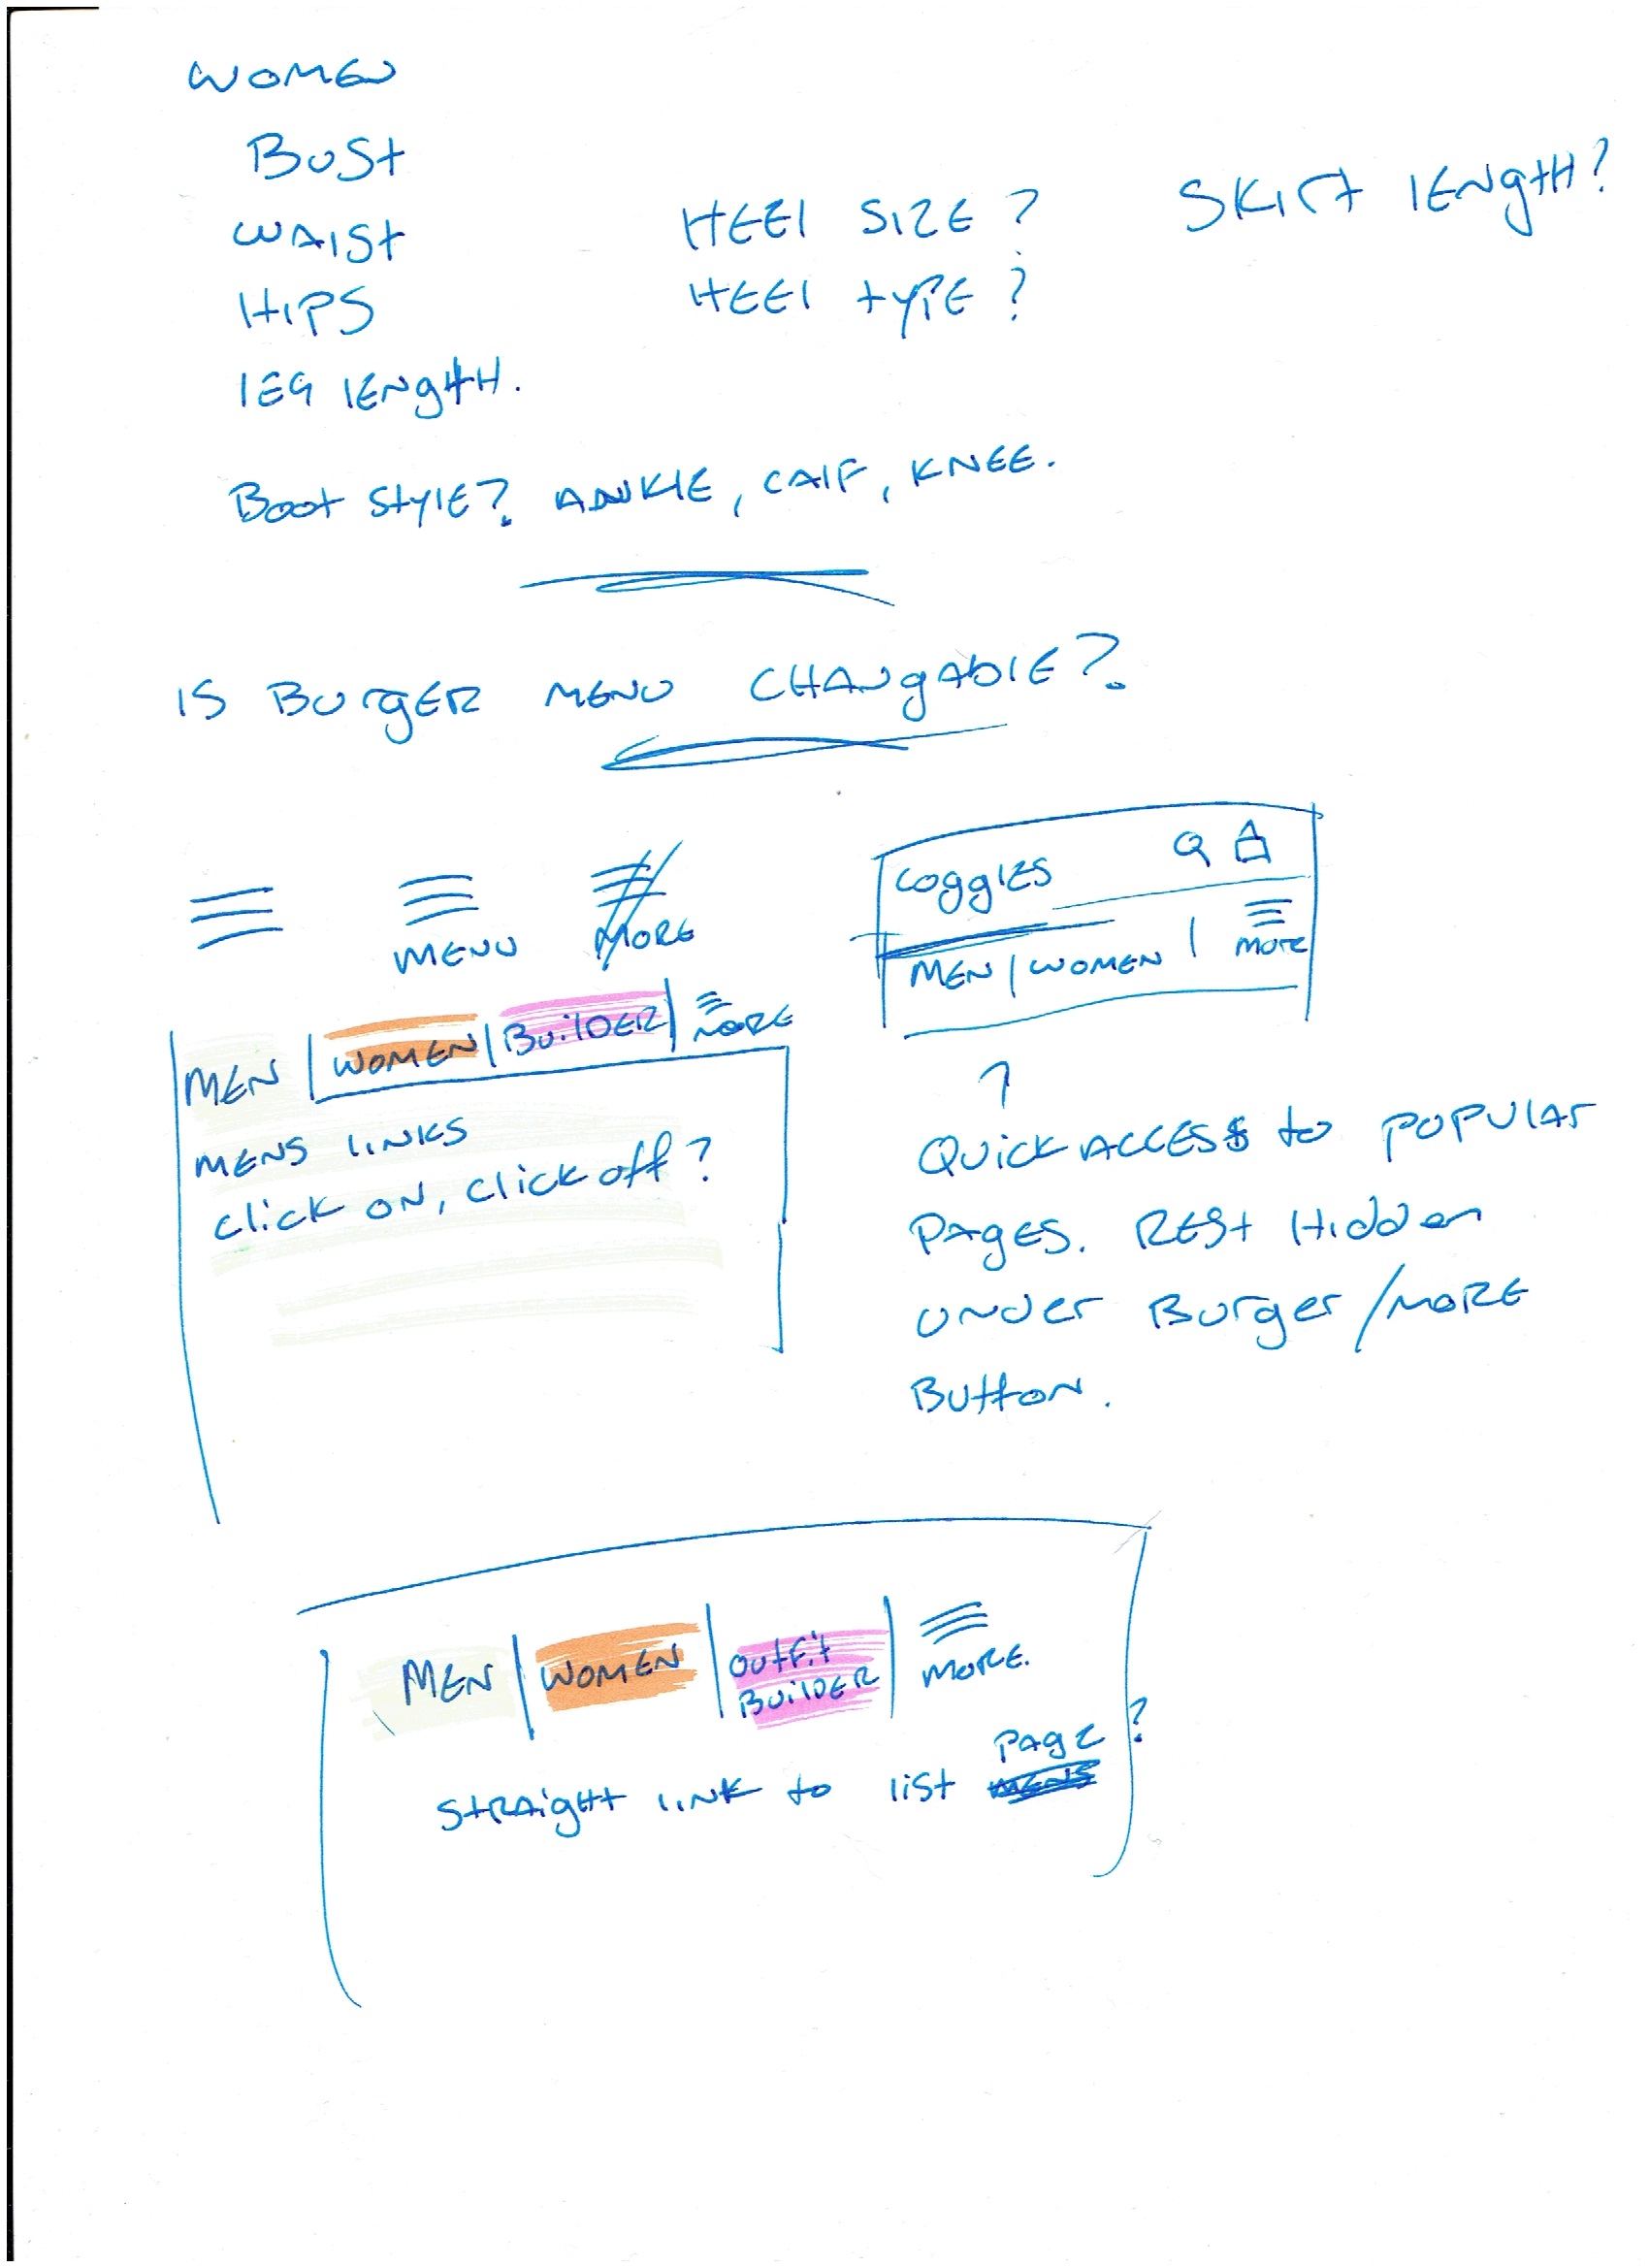 WOMEN
BUST
WAIST
HIPS
LEG LENGTH.
HEEL SIZE?
HEEL TYPE?
SKIRT LENGTH?
BOOT STYLE? ANKLE, CALF, KNEE.
IS BURGER MENU CHANGABLE?
MENU
MORE
COGGLES
MEN | WOMEN |
MORE
MEN | WOMEN | BUILDER | MORE
MENS LINKS
CLICK ON, CLICK OFF?
QUICK ACCESS TO POPULAR
PAGES. REST HIDDEN
UNDER BURGER/MORE
BUTTON.
MEN | WOMEN | OUTFIT
BUILDER | MORE.
STRAIGHT LINK TO LIST PAGE?